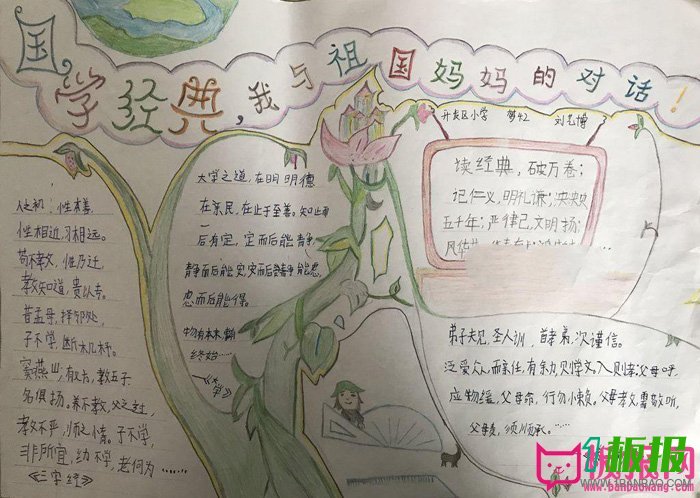 国学经典,我与祖国妈妈的对话!
开发区小学
人之初,性本善,
性相近,习相远。
苟不教,性乃迁,
教知道,贵以专。
昔孟母,择邻处,
子不学,断机杼。
窦燕山,有义方,教五子
名俱扬。养不教,父之过,
教不严,师之惰。子不学,
非所宜,幼不学,老何为……
《三字经》
大学之道,在明明德
在亲民,在止于至善。知止而
后有定,定而后能静,
静而后能安,安而后能虑,
虑而后能得。
物有本末,
终始……
读经典,破万卷;
记仁义,明礼谦;泱泱
五千年;严律己,文明扬;
弟子规,圣人训,首孝弟,次谨信。
泛爱众,而亲仁,有余力,则学文,入则孝:父母呼,
应物缓,父母命,行勿懒,父母教,需敬听,
父母责,须顺承。……
板报网
WWW.1BANBAO.COM
www.banbaowang.com